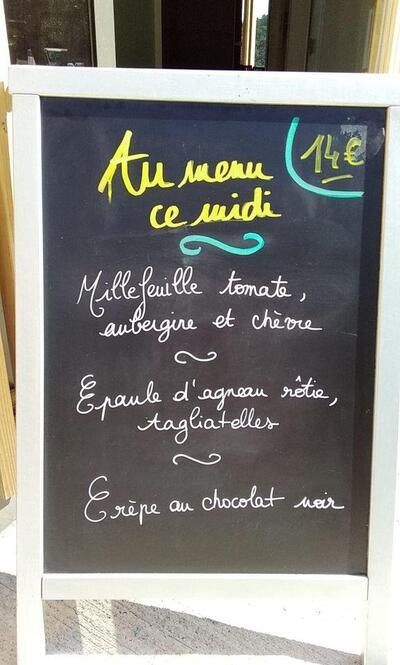 Au menu
14€
ce midi
Millefeuille tomate,
aubergine et chèvre
Epaule d'agneau rôtie,
tagliatelles
Crèpe au chocolat noir